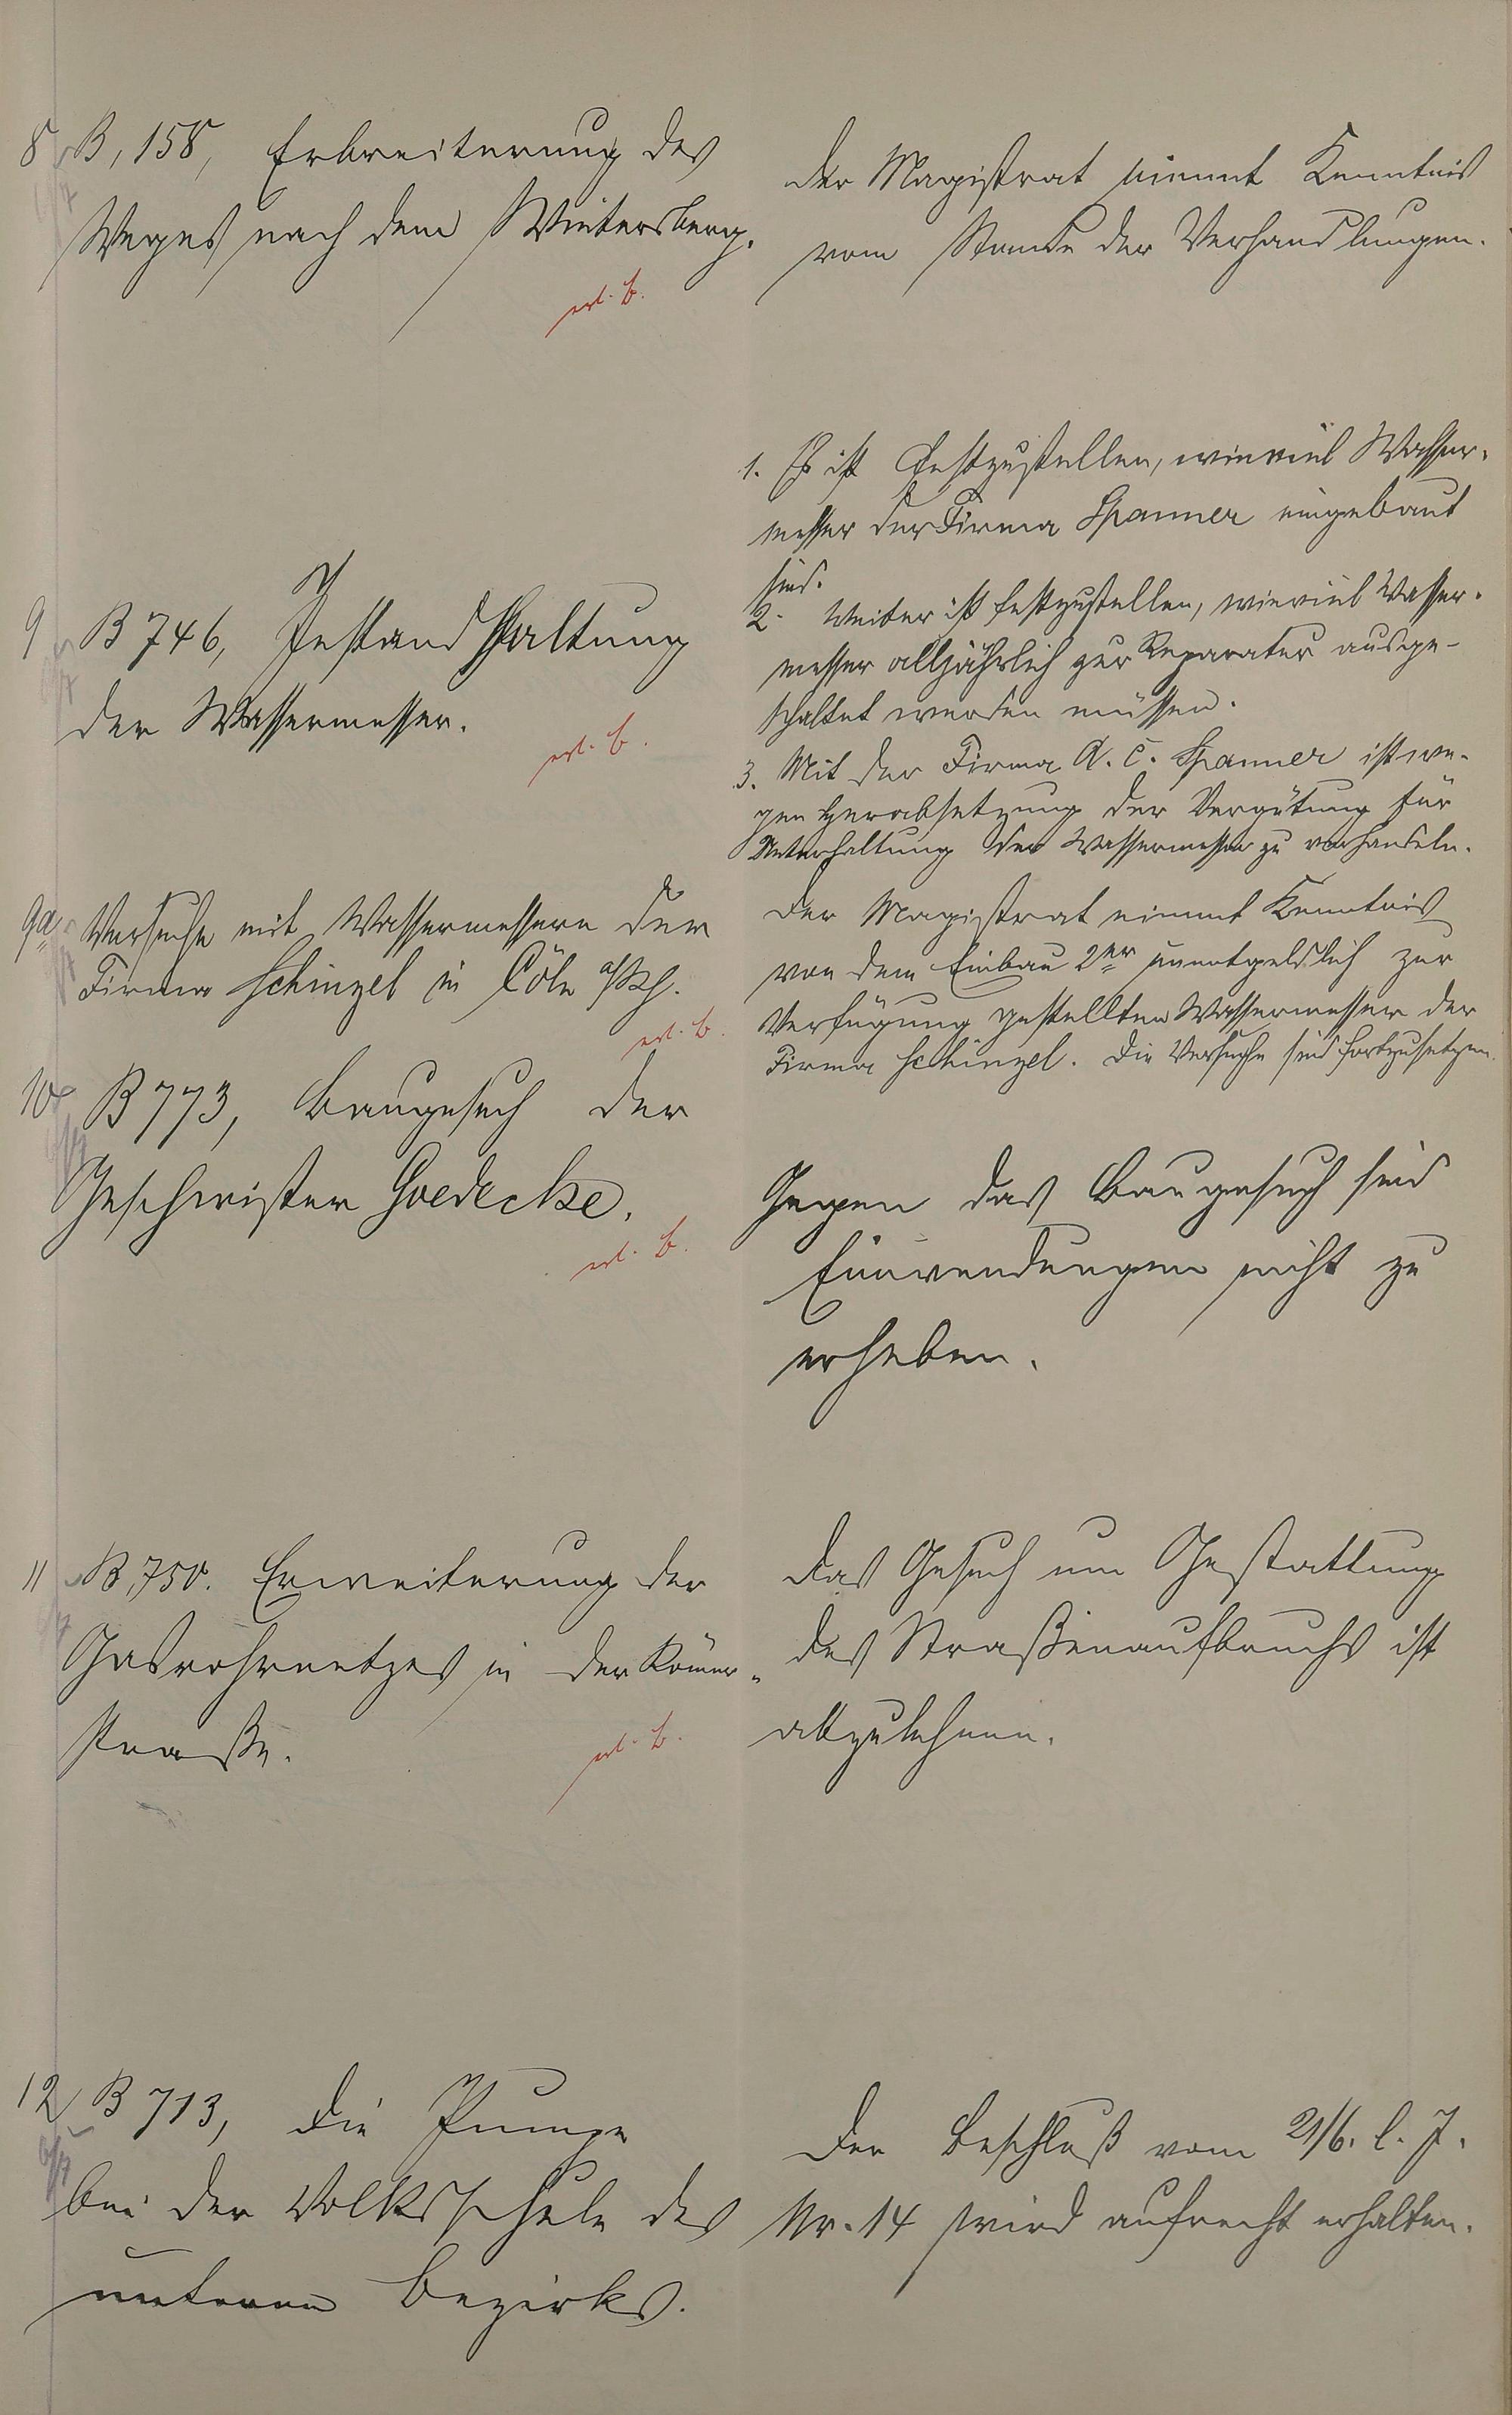 8 B, 158, Erbreiterung des
Weges nach dem Wintersberg.
erl. B.
Der Magistrat nimmt Kenntnis
vom Stande der Verhandlungen.
9 B 746, Instandhaltung
der Wassermesser.
erl. B.
1. Es ist festzustellen, wieviel Wasser-
messer der Firma Spanner eingebaut
sind.
2. Weiter ist festzustellen, wieviel Wasser-
messer alljährlich zur Reparatur ausge-
schaltet werden müssen.
3. Mit der Firma A. C. Spanner ist we-
gen Herabsetzung der Vergütung für
Unterhaltung der Wassermesser zu verhandeln.
9a Versuche mit Wassermessern der
Firma Schinzel in Cöln a/Rh.
erl. B.
Der Magistrat nimmt Kenntnis
von dem Einbau 2er unentgeldlich zur
Verfügung gestellten Wassermesser der
Firma Schinzel. Die Versuche sind fortzusetzen.
10 B 773, Baugesuch der
Geschwister Goedecke.
erl. B.
Gegen das Baugesuch sind
Einwendungen nicht zu
erheben.
11 B, 750. Erweiterung des
Gasrohrnetzes in der Römer-
straße.
erl. B.
Das Gesuch um Gestattung
des Straßenaufbruchs ist
abzulehnen.
12 B 713, Die Pumpe
bei der Volksschule des
unteren Bezirks.
Der Beschluß vom 21/6. l. J.
Nr. 14 wird aufrecht erhalten.